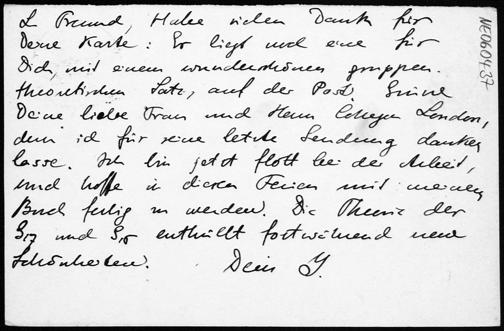 L. Freund, Habe vielen Dank für
Deine Karte: Es liegt noch eine für
Dich, mit einem wunderschönen gruppen-
theoretischen Satz, auf der Post. Grüsse
Deine liebe Frau und Herrn Collegen London,
dem ich für seine letzte Sendung danken
lasse. Ich bin jetzt flott bei der Arbeit,
und hoffe in diesen Ferien mit meinem
Buch fertig zu werden. Die Theorie der
und enthüllt fortwährend neue
Schönheiten. Dein Y.
NE060437